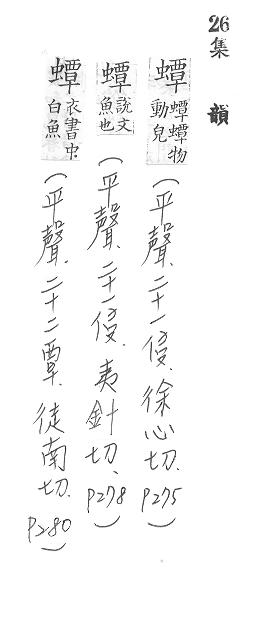 26集韻
蟫蟫蟫物動皃(平聲、二十一侵、徐心切、P275)
蟫說文魚也(平聲、二十一侵、夷針切、P278)
蟫衣書中白魚(平聲、二十二覃、徒南切、P280)